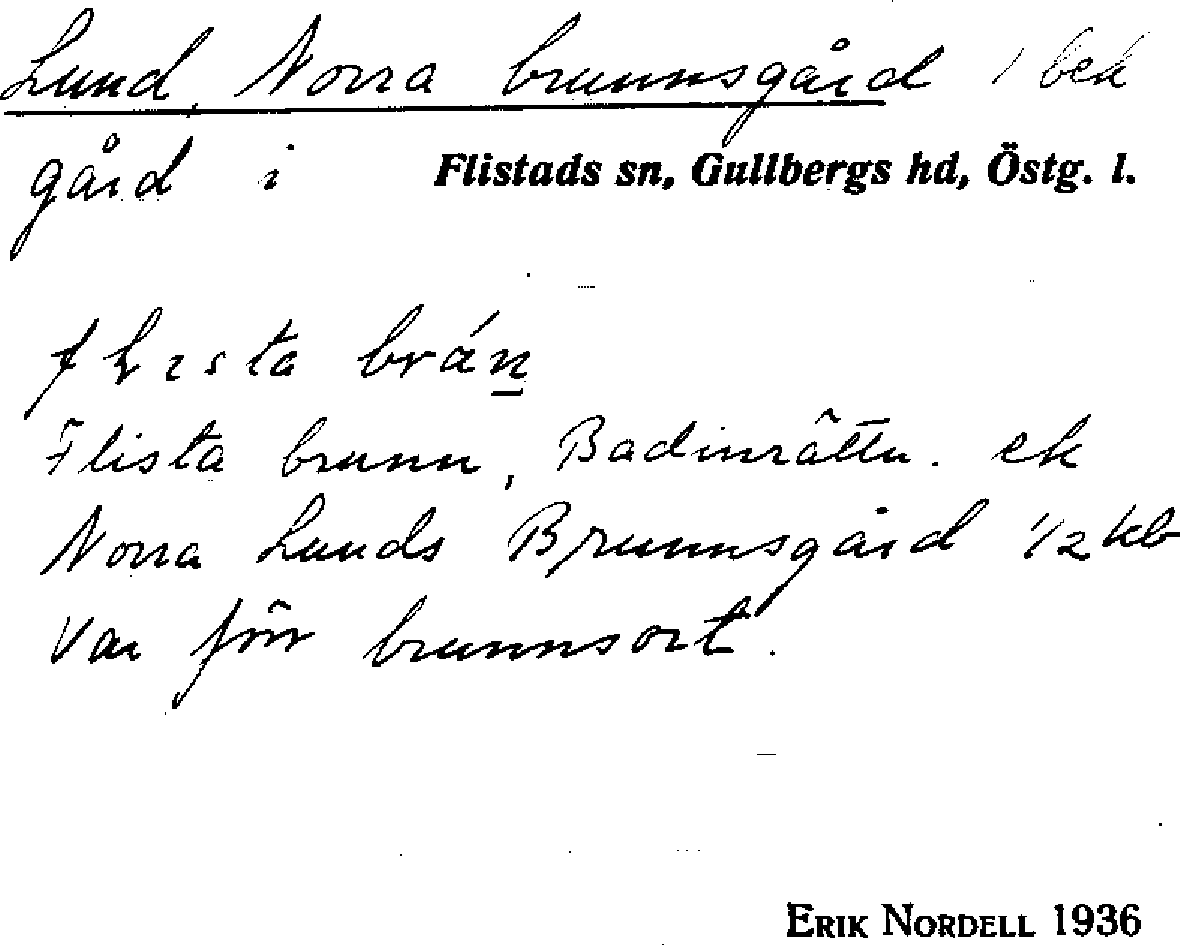 Lund, Norra brunnsgård / bek
gård i Flistads sn, Gullbergs hd, Östg. l.
flista brán
Flista brunn, Badinrättn. ek
Norra Lunds Brunnsgård 1/2 kb
Var förr brunnsort.
ERIK NORDELL 1936